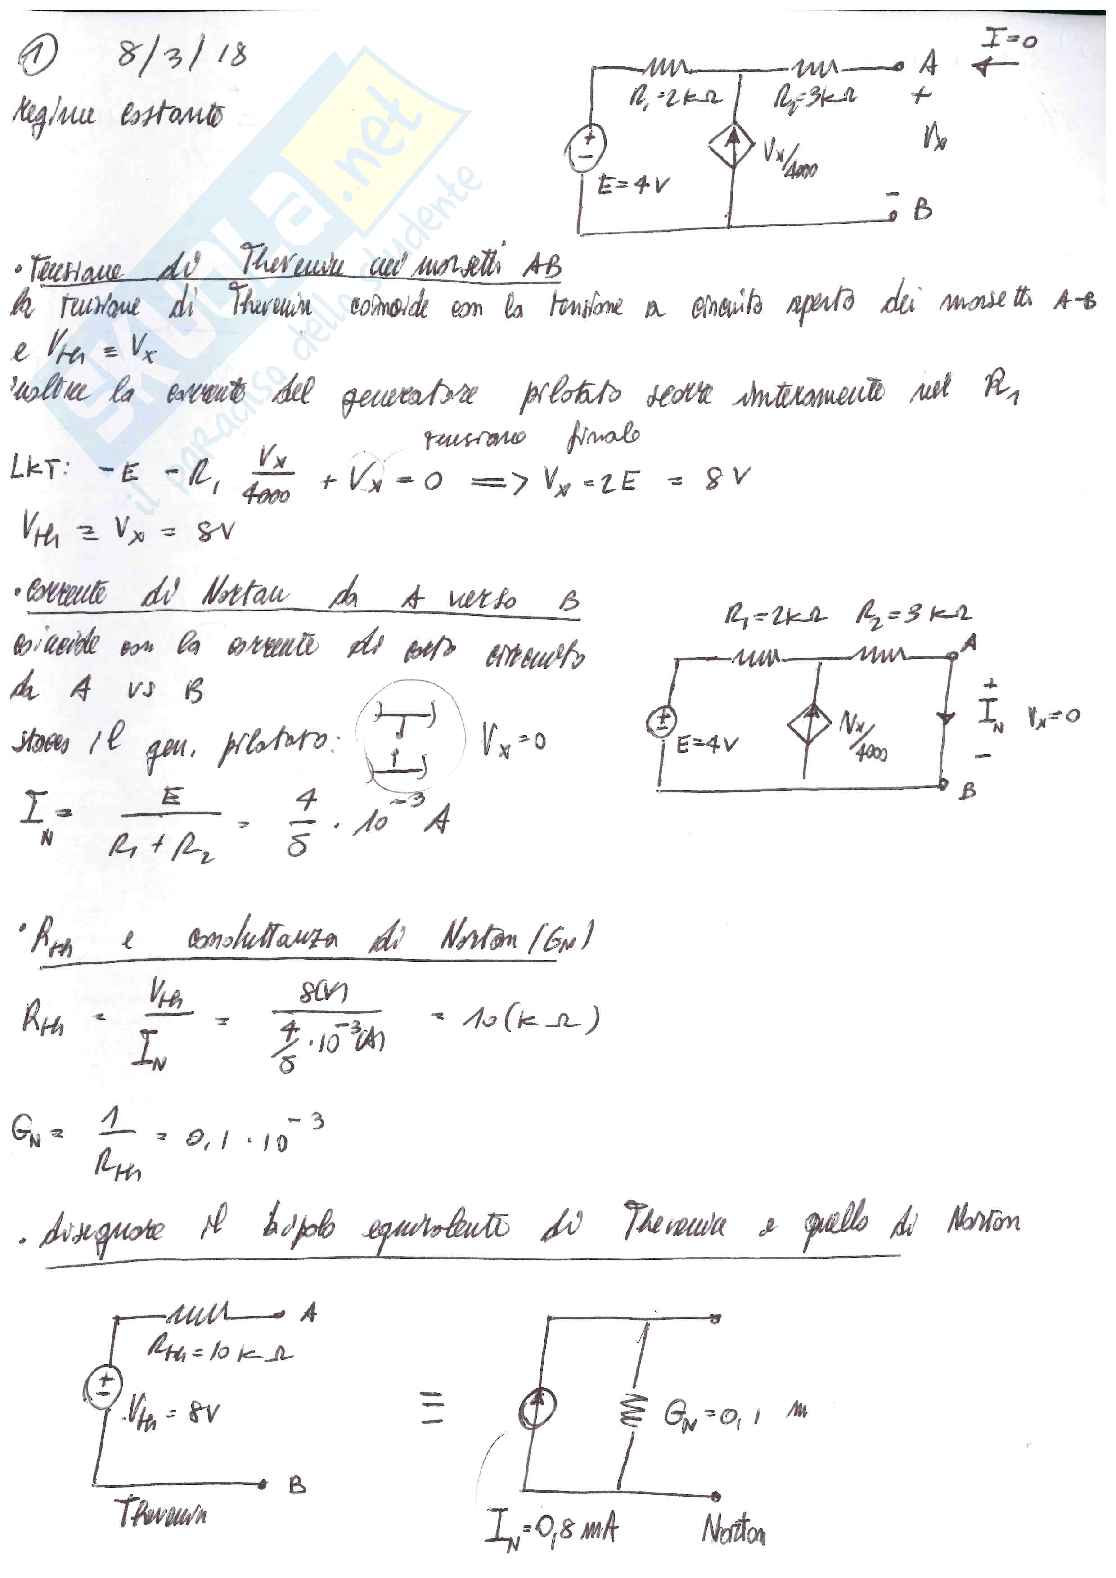 1 8/3/18
Regime costante
I=0
A
R₁=2kΩ R₂=3kΩ
+
Vx
E=4V
Vx/4000
-
B
+
-
SKUOLA.net
il paradiso dello studente
• Tensione di Thevenin ai morsetti AB
la tensione di Thevenin coincide con la tensione a circuito aperto dei morsetti A-B
e VTH ≡ Vx
inoltre la corrente del generatore pilotato scorre interamente nel R₁
tensione finale
LKT: -E -R₁ Vx/4000 + Vx = 0 => Vx = 2E = 8V
VTH ≡ Vx = 8V
• corrente di Norton da A verso B
coincide con la corrente di corto circuito
da A vs B
il gen. pilotato: Vx=0
IN = E/(R₁ + R₂) = 4/5 · 10⁻³ A
R₁=2kΩ R₂=3kΩ
A
+
IN Vx=0
-
E=4V
Vx/4000
B
+
-
• RTH e conduttanza di Norton (GN)
RTH = VTH/IN = 8(V)/(4/5 · 10⁻³(A)) = 10(kΩ)
GN = 1/RTH = 0,1 · 10⁻³
• disegnare il bipolo equivalente di Thevenin e quello di Norton
A
RTH=10kΩ
+
-
VTH = 8V
B
Thevenin
≡
GN=0,1 m
IN=0,8mA
Norton